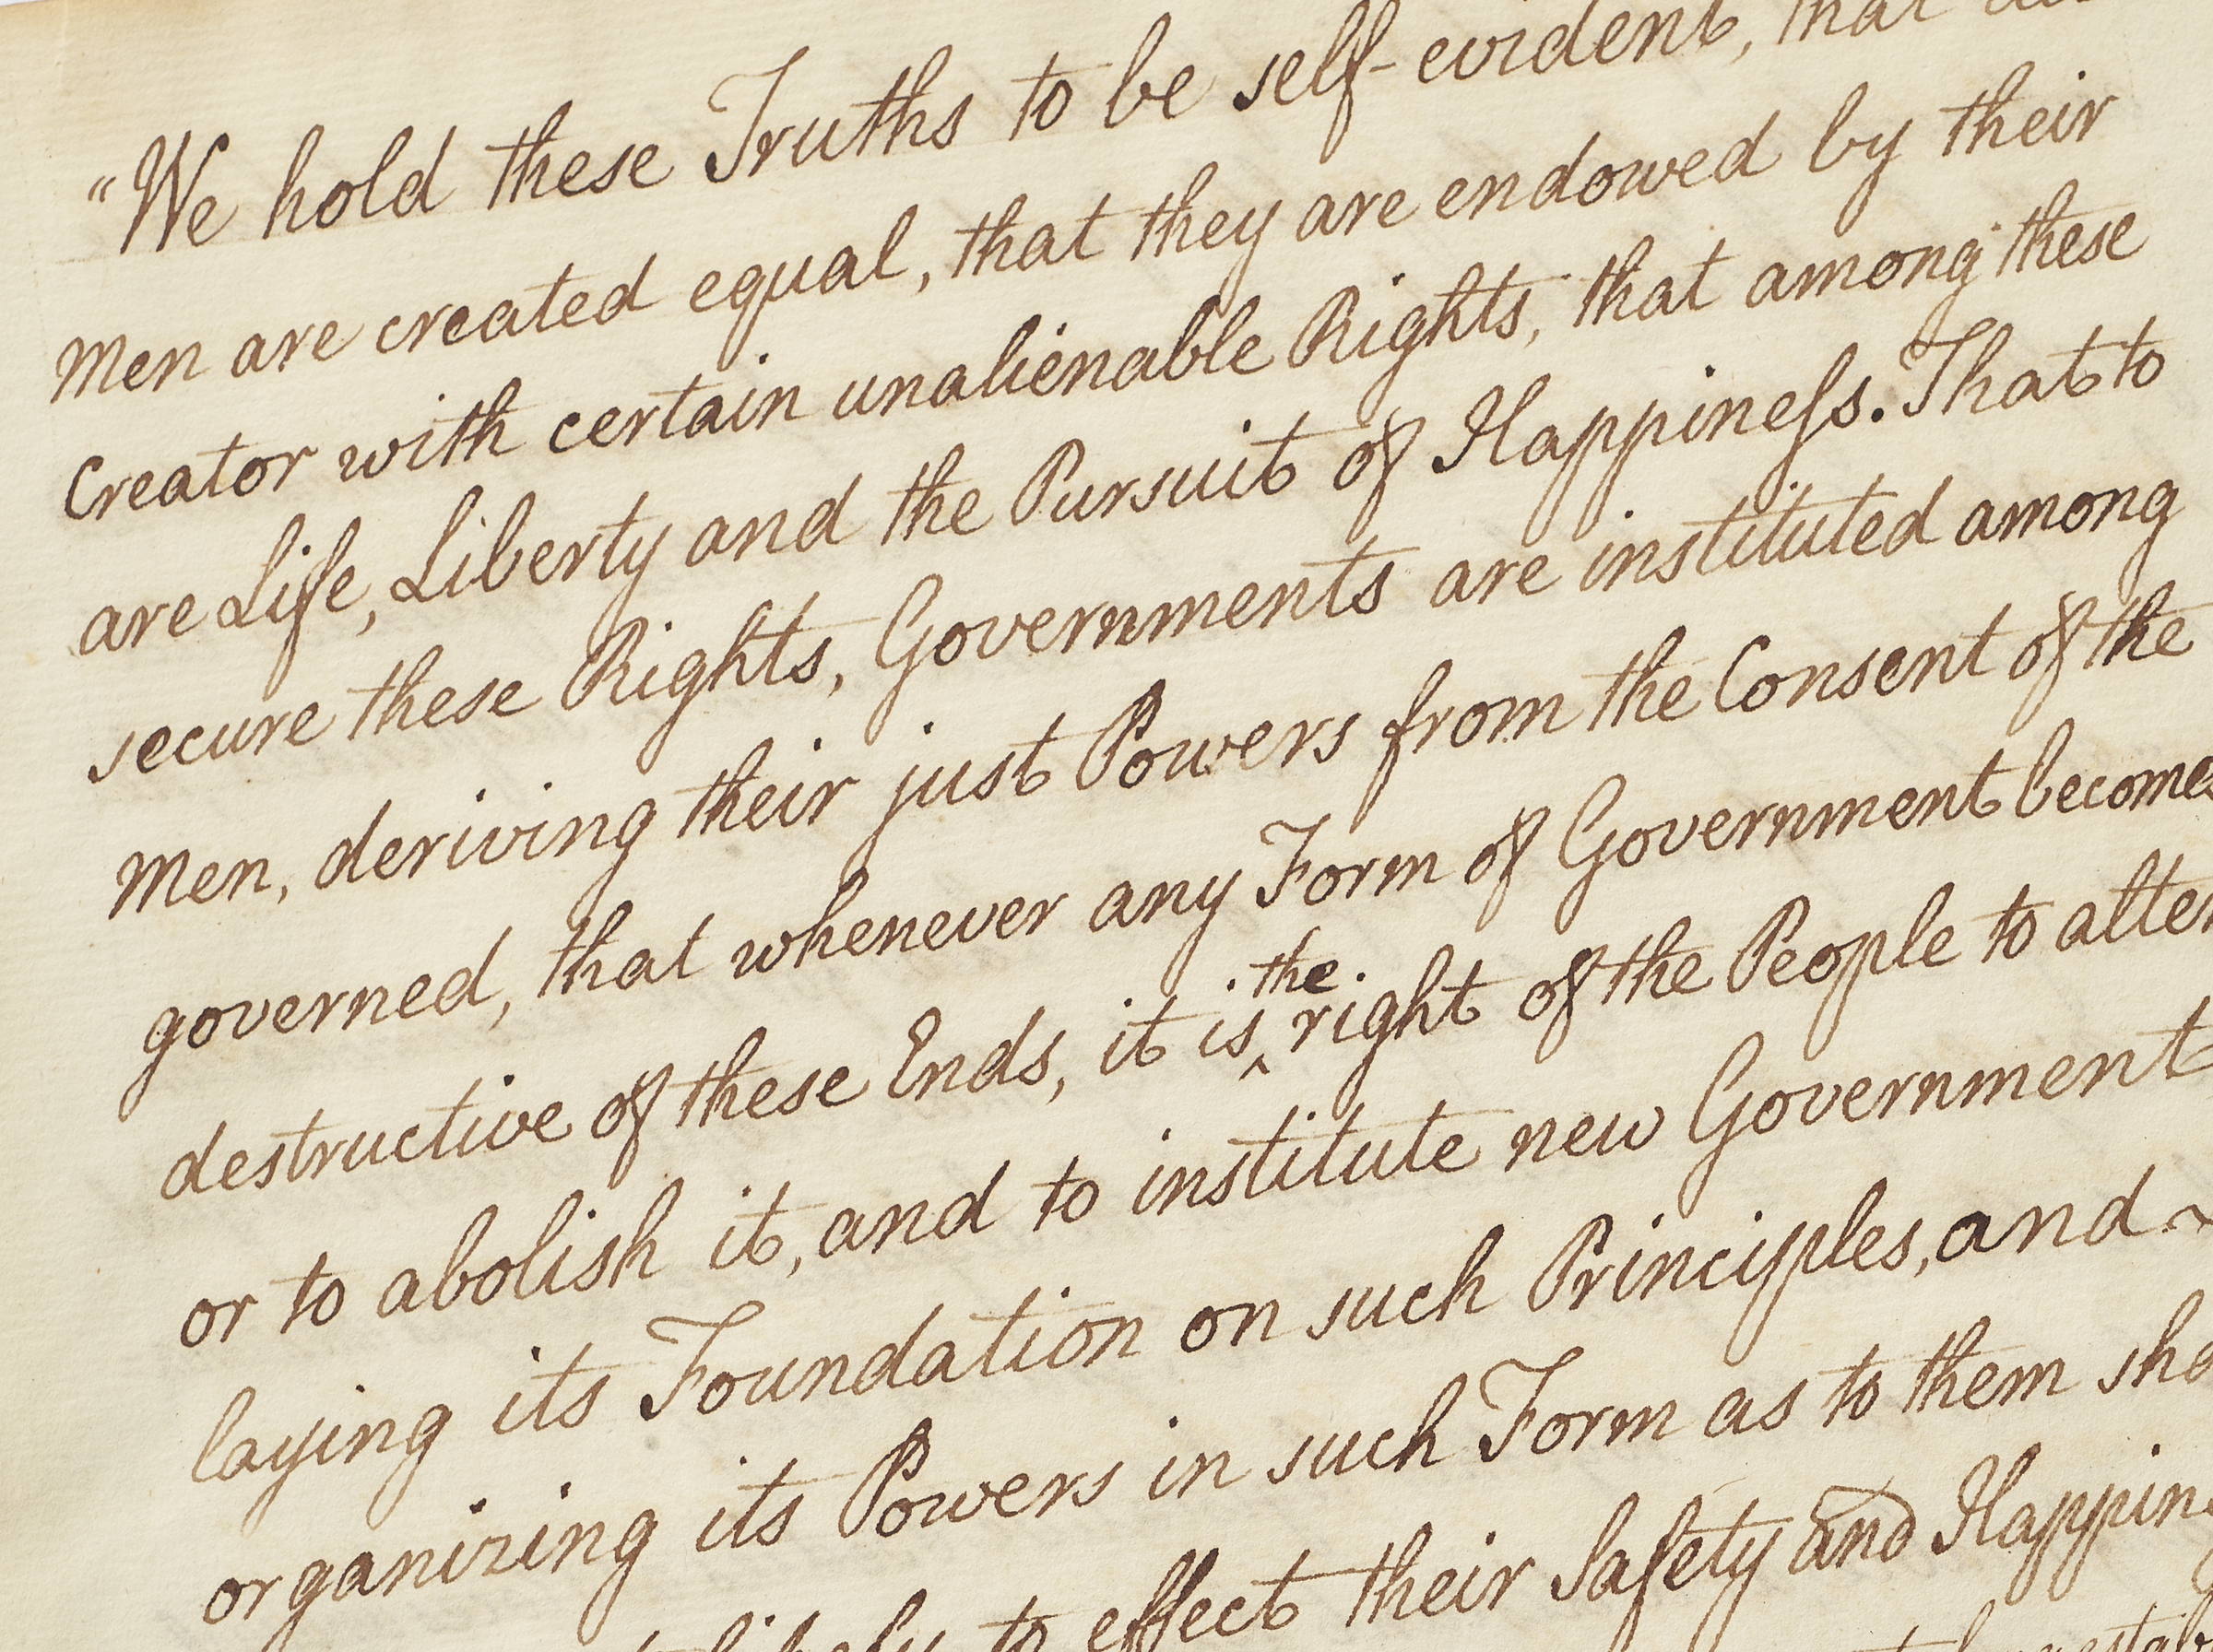 “We hold these Truths to be self-evident, that all
Men are created equal, that they are endowed by their
Creator with certain unalienable Rights, that among these
are Life, Liberty and the Pursuit of Happineſs. That to
secure these Rights, Governments are instituted among
Men, deriving their just Powers from the Consent of the
governed, that whenever any Form of Government becomes
destructive of these Ends, it is ‸the right of the People to alter
or to abolish it, and to institute new Government
laying its Foundation on such Principles, and ~
organizing its Powers in such Form as to them
likely to effect their Safety and